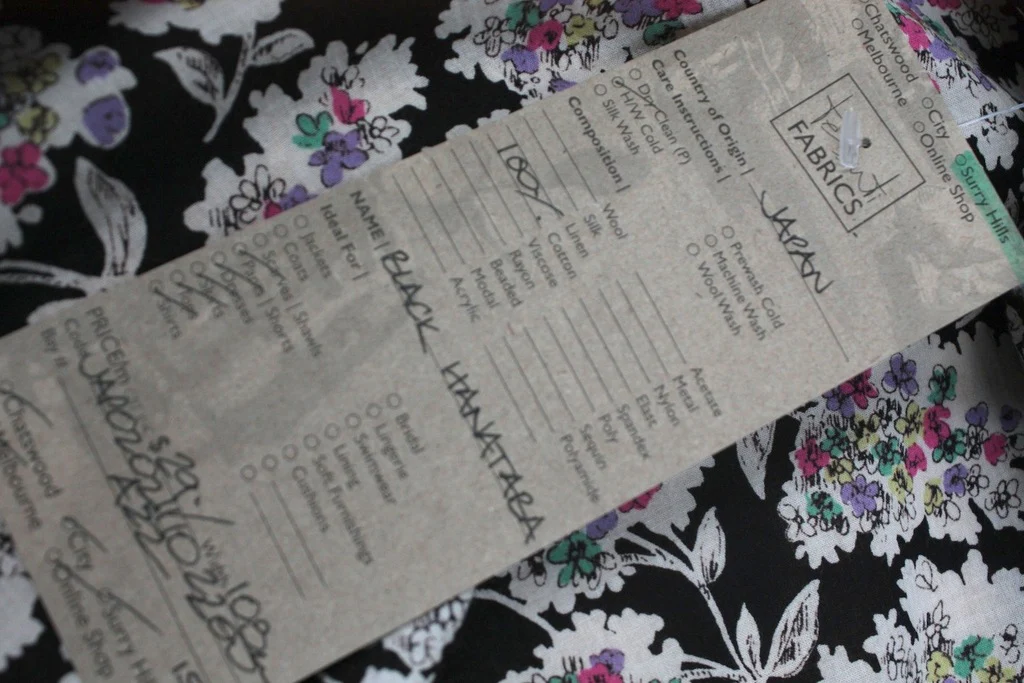 Chatswood City Surry Hills
Melbourne Online Shop
Tessuti
FABRICS
Country of Origin | JAPAN
Care Instructions |
Dry Clean (P) Prewash Cold
H/W Cold Machine Wash
Silk Wash Wool Wash
Composition |
Wool Acetate
Silk Metal
Linen Nylon
100% Cotton Elast.
Viscose Spandex
Rayon Poly
Beaded Sequin
Modal Polyamide
Acrylic
NAME | BLACK HANATABA
Ideal For |
Jackets Bridal
Coats Lingerie
Scarves | Shawls Swimwear
Lining
Soft Furnishings
Shirts Cushions
PRICE/m $29.- Width 108
Code
Buy #
Chatswood City Surry Hills
Melbourne Online Shop